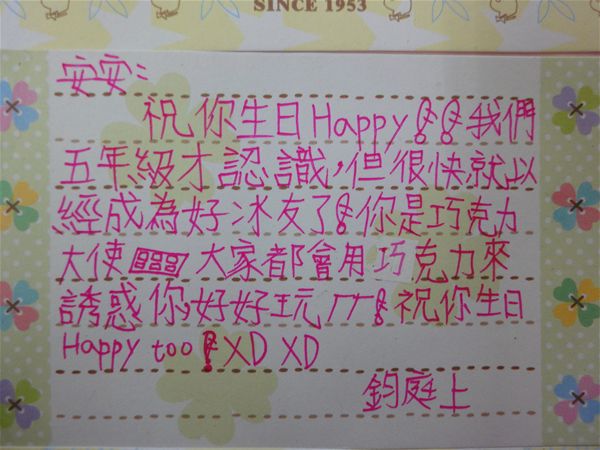 SINCE 1953
安安:
祝你生日Happy!!我們
五年級才認識,但很快就以
經成為好冰友了!你是巧克力
大使 大家都會用巧克力來
誘惑你,好好玩ㄏㄏ!祝你生日
Happy too!XD XD
鈞庭上